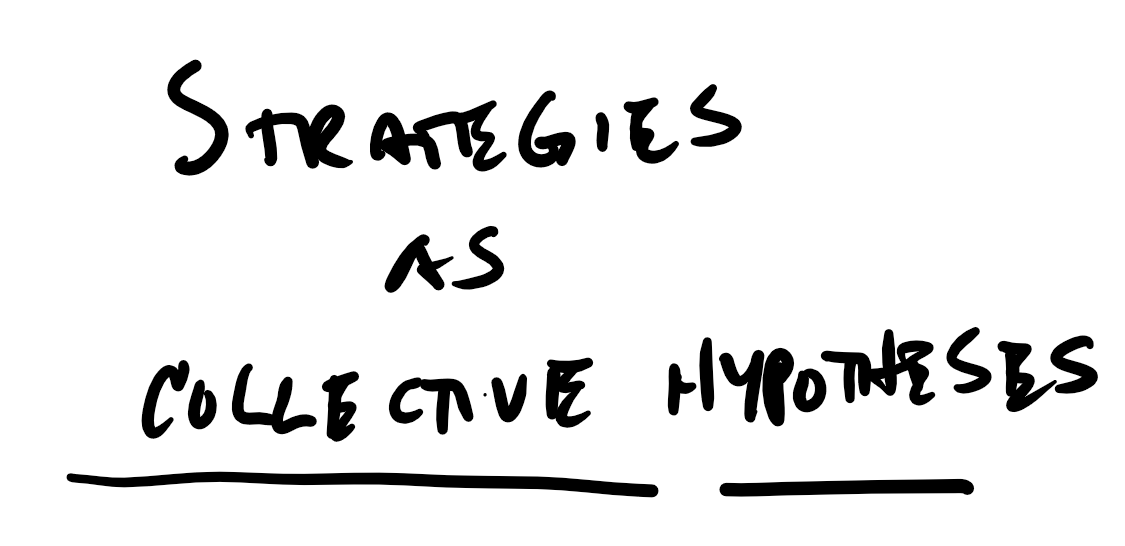 STRATEGIES
AS
COLLECTIVE HYPOTHESES